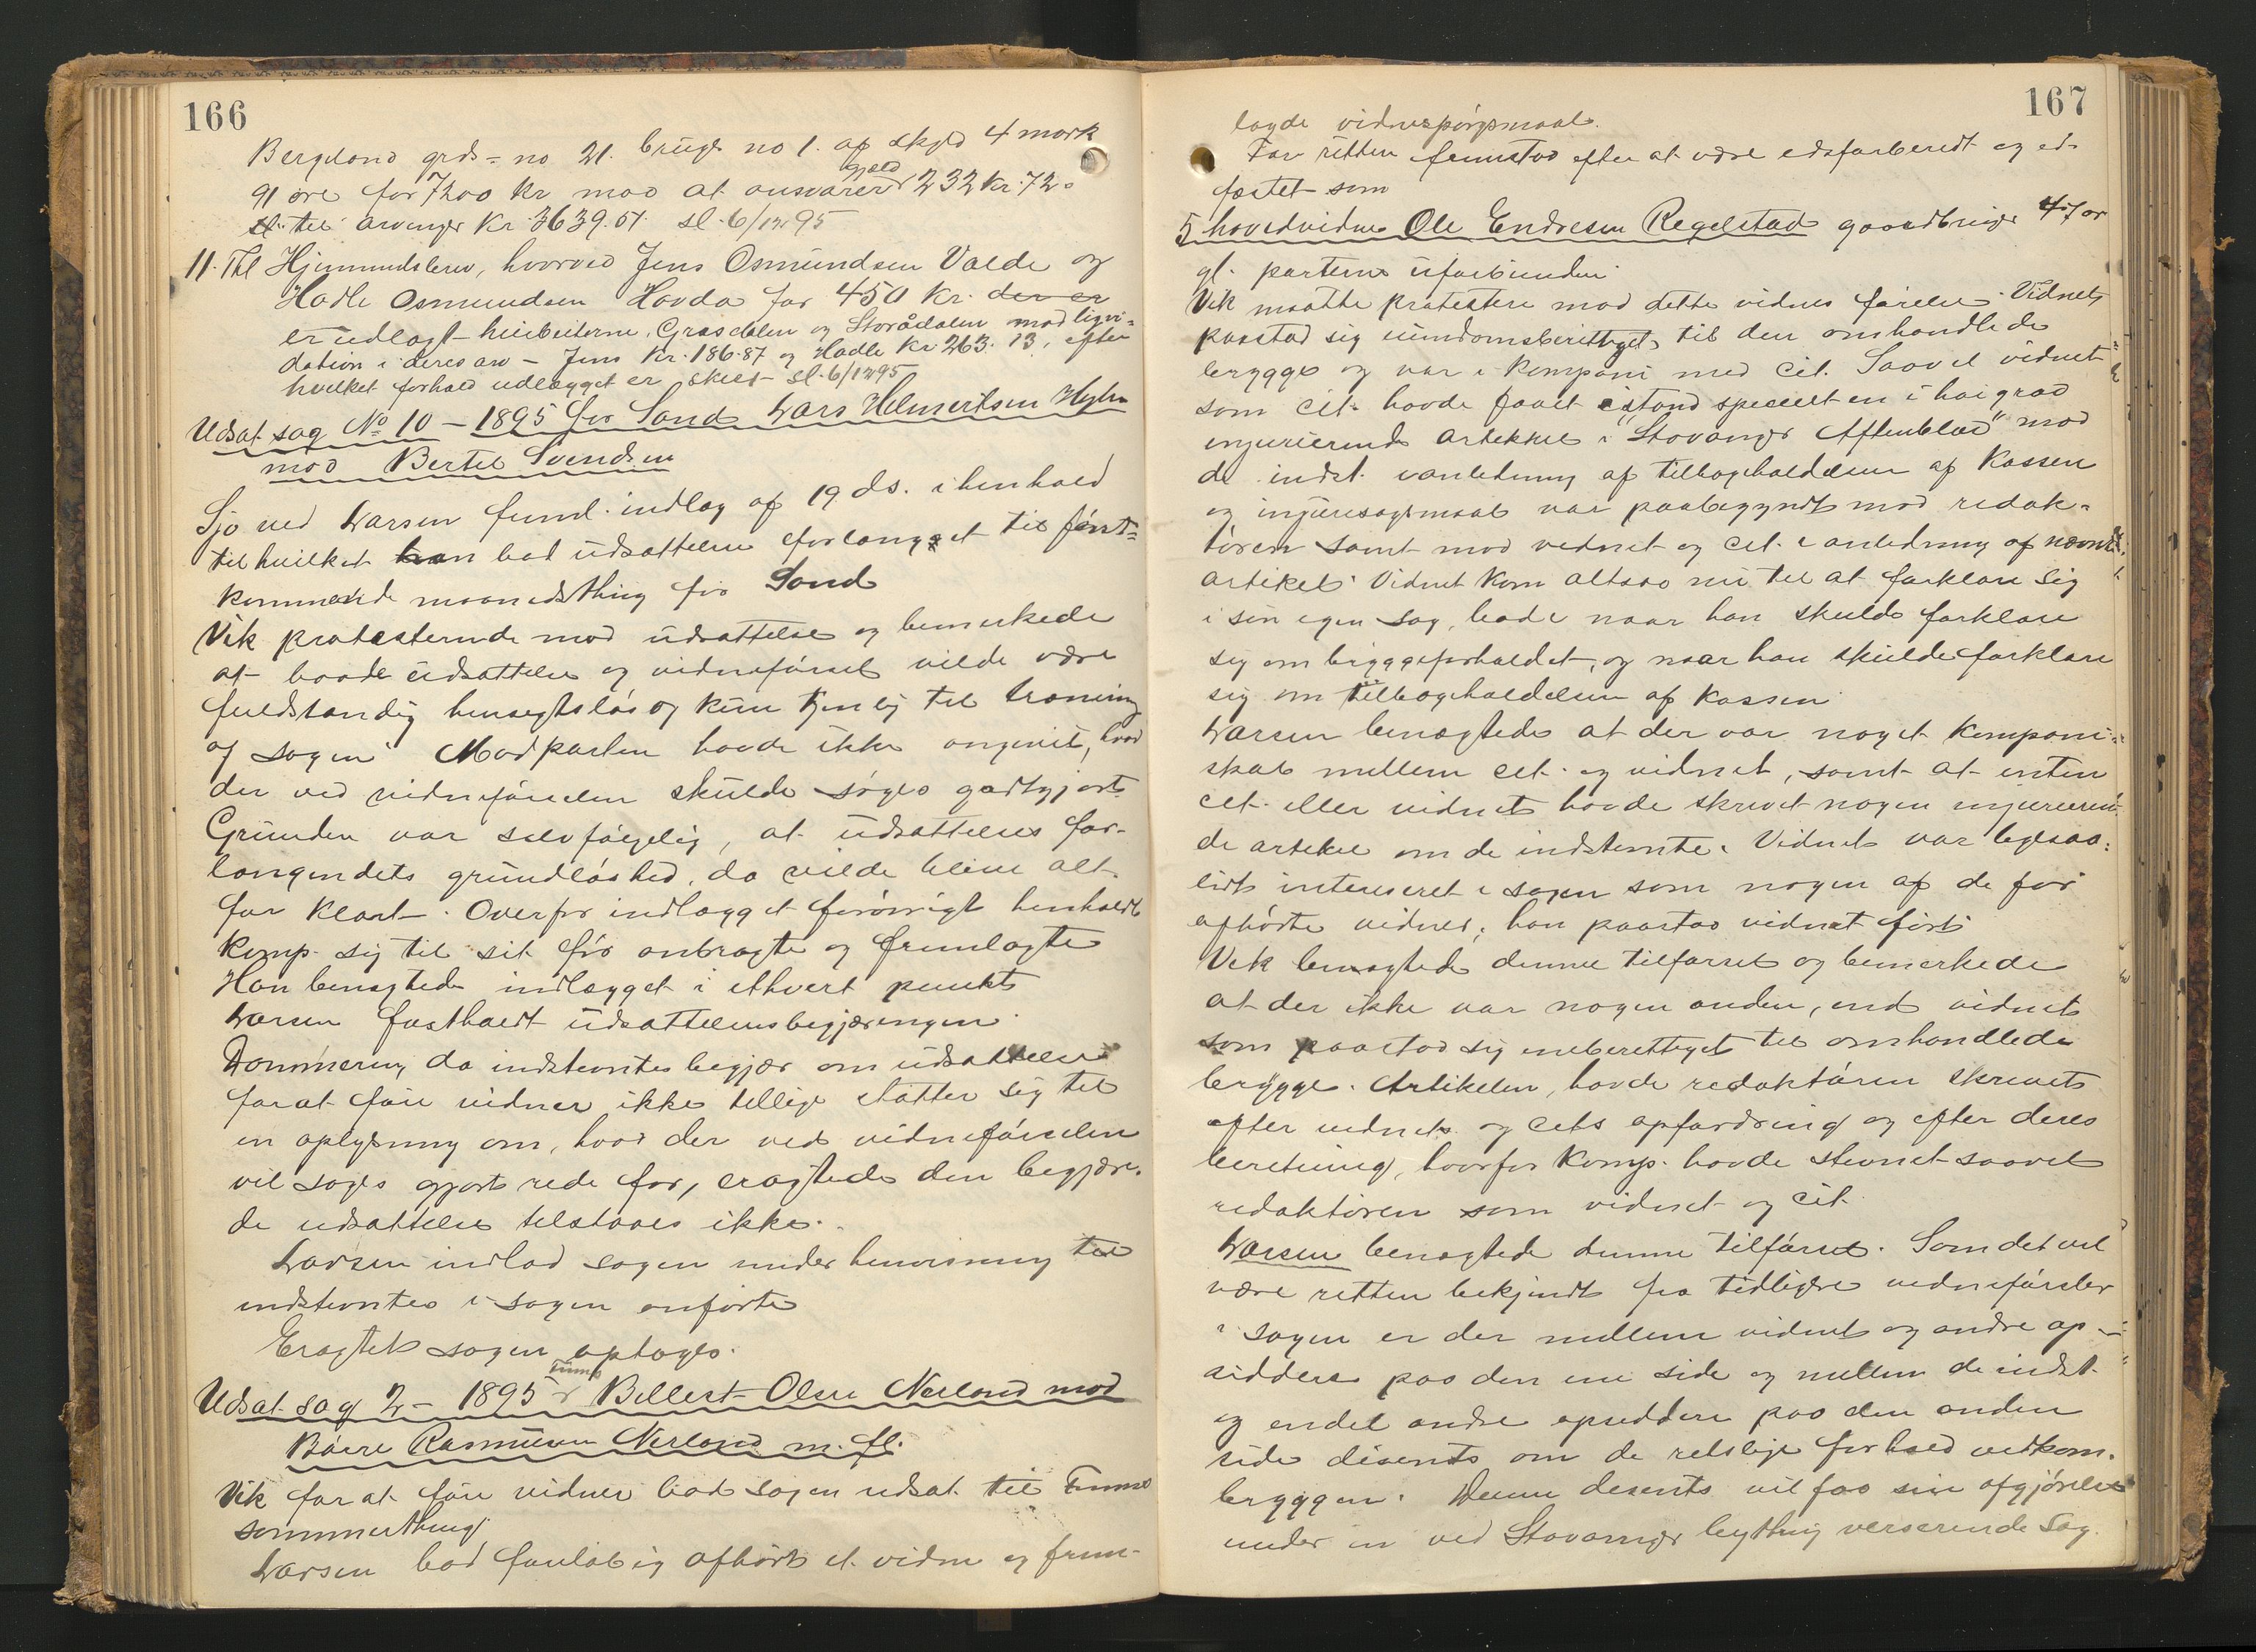 166
Bergeland grds-no 21. brugs no 1. af skyld 4 mark
91 øre for 7200 kr mod at ansvarer gjæld 232 kr. 72.
sl. til arvinger kr. 3639.51. sl. 6/12 95
11. Thl Hjemmelsbrev, hvorved Jens Osmundsen Valde og
Hadle Osmundsen Havda for 450 kr. der er
er udlagt heibeiterne. Grasdalen og Storådalen mod ligvi-
dation i deres arv - Jens kr. 186.87 og Hadle kr 263.13, efter
hvilket forhold udlægget er skeet sl. 6/12 95
Udsat sag No 10 - 1895 for Sand Lars Helmertsen
mod Bertel Svendsen
Sjo ved Larsen freml. indlæg af 19 ds. i henhold
til hvilket han bad udsættelse forlanget til først-
kommende maanedsthing for Sand
Vik protesterende mod udsættelse og bemerkede
at baade udsættelse og vidneførsel vilde være
fuldstændig hensigtsløs og kun tjenlig til træning
af sagen. Modparten havde ikke angivet, hvad
der ved vidneførselen skulde søges godtgjort.
Grunden var selvfølgelig, at udsættelses for-
langendets grundløshed, da vilde blive alt-
for klart. Overfor indlægget forøvrigt henholdt
komp. sig til sit før anbragte og fremlagte
Han benegtede indlægget i ethvert punkt
Larsen fastholdt udsættelsesbegjæringen.
Dommeren, da indstevntes begjær om udsættelse
forat føre vidner ikke tillige støtter sig til
en oplysning om, hvad der ved vidneførselen
vil søges gjort rede for, eragtede den begjær-
de udsættelse tilstaaes ikke.
Larsen indlod sagen under henvisning til
indstevntes i sagen anførte
Eragtet sagen optages.
Udsat sag 2 - 1895 Finnø Bellest Olsen Nerland mod
Baare Rasmusen Nerland m. fl.
Vik forat føre vidner bad sagen udsat til Finnø
sommerthing
Larsen bad foreløbig afhørt et vidne og frem-
167
lagde vidnespørgsmaal.
For retten fremstod efter at være edsforberedt og ed-
fæstet som
5 hovedvidne Ole Endresen Regelstad gaardbruger 47 aar
gl. parterne uforbunden
Vik maatte protestere mod dette vidnes førelse. Vidnet
paastod sig eiendomsberettiget til den omhandlede
brygge og var i kompani med cit. Saavel vidnet
som cit. havde faaet istand specielt en i høi grad
injurierende artikkel i "Stavanger Aftenblad" mod
de indst. i anledning af tilbageholdelsen af kassen
og injuriesøgsmaal var paabegyndt mod redak-
tøren samt mod vidnet og cit. i anledning af nævnte
artikel. Vidnet kom altsaa nu til at forklare sig
i sin egen sag, baade naar han skulde forklare
sig om bryggeforholdet, og naar han skulde forklare
sig om tilbageholdelsen af kassen.
Larsen benegtede at der var noget kompani-
skab mellem cit. og vidnet, samt at enten
cit. eller vidnet havde skrevet nogen injurieren-
de artikel om de indstevnte. Vidnet var ligesaa-
lidt interesseret i sagen som nogen af de før
afhørte vidner; han paastod vidnet ført
Vik benegtede denne tilførsel og bemerkede
at der ikke var nogen anden, end vidnet
som paastod sig eneberettiget til omhandlede
brygge. Artikelen, havde redaktøren skrevet
efter vidnets og cits opfordring og efter deres
beretning, hvorfor komp. havde stevnet saavel
redaktøren som vidnet og cit.
Larsen benegtede denne tilførsel. Som det vil
være retten bekjendt fra tidligere vidneførsler
i sagen er der mellem vidnet og andre op-
siddere paa den ene side og mellem de indst.
og endel andre opsiddere paa den anden
side disents om de retslige forhold vedkom.
bryggen. Denne disents vil faa sin afgjørelse
under en ved Stavanger bything verserende sag.